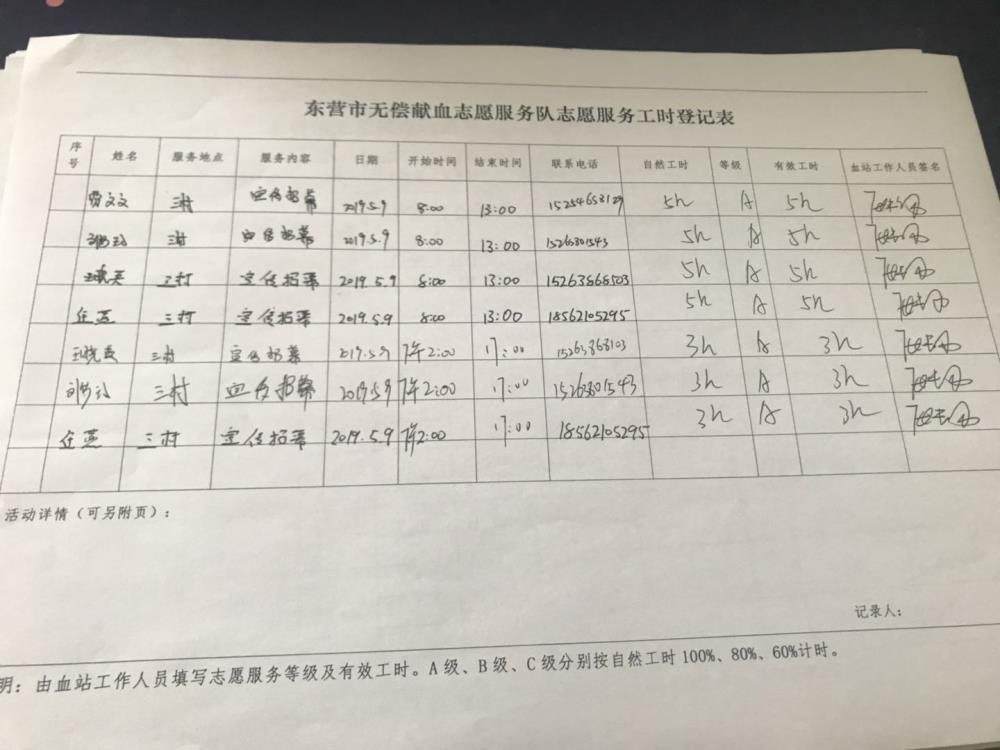 东营市无偿献血志愿服务队志愿服务工时登记表
序号 姓名 服务地点 服务内容 日期 开始时间 结束时间 联系电话 自然工时 等级 有效工时 血站工作人员签名
贾文文 三村 宣传招募 2019.5.9 8:00 13:00 15254658129 5h A 5h
三村 宣传招募 2019.5.9 8:00 13:00 15263801543 5h A 5h
王晓英 三村 宣传招募 2019.5.9 8:00 13:00 15263868503 5h A 5h
任燕 三村 宣传招募 2019.5.9 8:00 13:00 18562105295 5h A 5h
王晓英 三村 宣传招募 2019.5.9 下午2:00 17:00 15263868103 3h A 3h
三村 宣传招募 2019.5.9 下午2:00 17:00 15263801543 3h A 3h
任燕 三村 宣传招募 2019.5.9 下午2:00 17:00 18562105295 3h A 3h
活动详情（可另附页）：
记录人：
明：由血站工作人员填写志愿服务等级及有效工时。A级、B级、C级分别按自然工时100%、80%、60%计时。